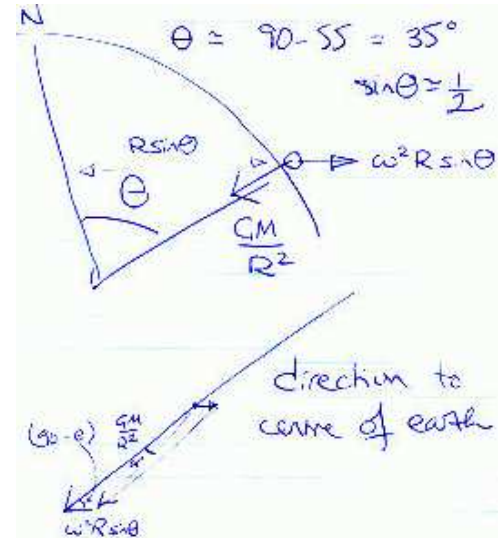 N
θ ≃ 90-55 = 35°
sinθ ≃ 1/2
R sinθ
θ
ω²R sinθ
GM/R²
direction to
centre of earth
(90-θ)
GM/R²
ω²R sinθ